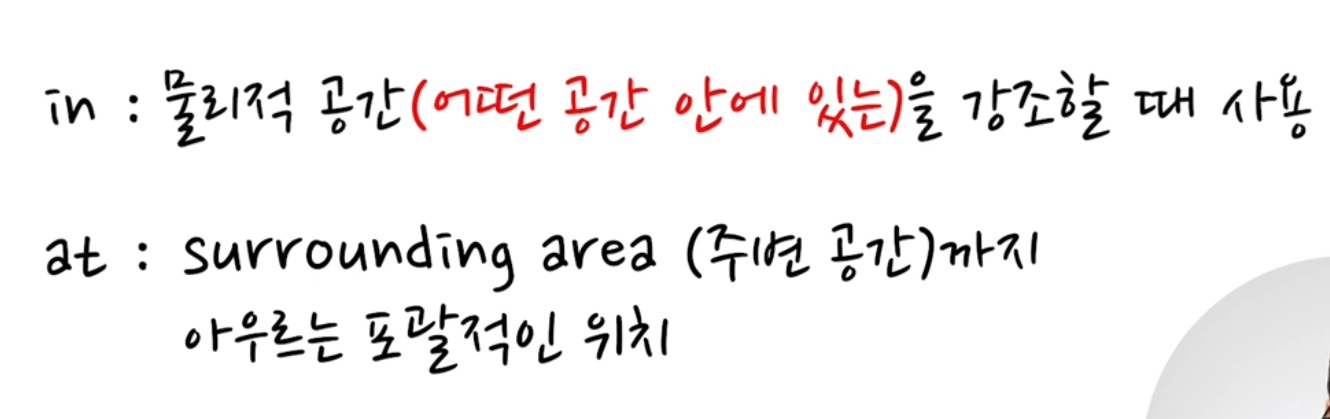 in : 물리적 공간(어떤 공간 안에 있는)을 강조할 때 사용
at : surrounding area (주변 공간)까지
아우르는 포괄적인 위치